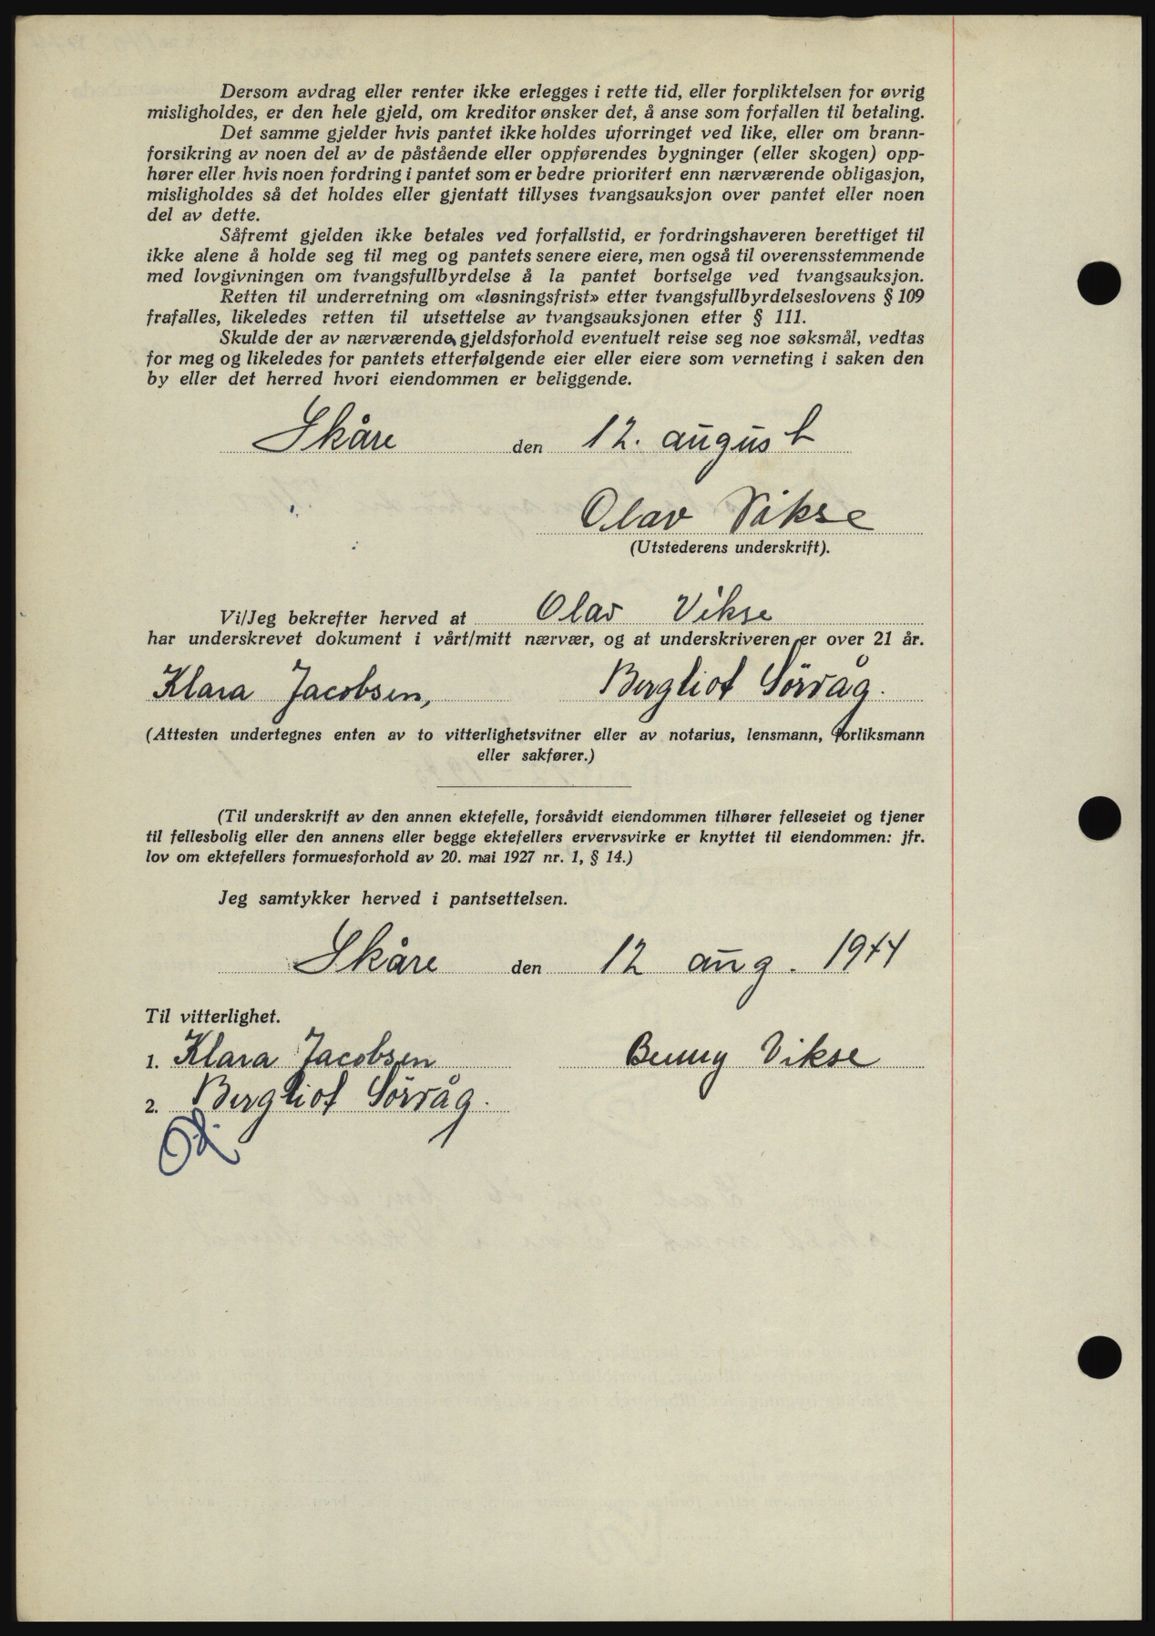 Dersom avdrag eller renter ikke erlegges i rette tid, eller forpliktelsen for øvrig
misligholdes, er den hele gjeld, om kreditor ønsker det, å anse som forfallen til betaling.
Det samme gjelder hvis pantet ikke holdes uforringet ved like, eller om brann-
forsikring av noen del av de påstående eller oppførendes bygninger (eller skogen) opp-
hører eller hvis noen fordring i pantet som er bedre prioritert enn nærværende obligasjon,
misligholdes så det holdes eller gjentatt tillyses tvangsauksjon over pantet eller noen
del av dette.
Såfremt gjelden ikke betales ved forfallstid, er fordringshaveren berettiget til
ikke alene å holde seg til meg og pantets senere eiere, men også til overensstemmende
med lovgivningen om tvangsfullbyrdelse å la pantet bortselge ved tvangsauksjon.
Retten til underretning om «løsningsfrist» etter tvangsfullbyrdelseslovens § 109
frafalles, likeledes retten til utsettelse av tvangsauksjonen etter § 111.
Skulde der av nærværende gjeldsforhold eventuelt reise seg noe søksmål, vedtas
for meg og likeledes for pantets etterfølgende eier eller eiere som verneting i saken den
by eller det herred hvori eiendommen er beliggende.
Skåre den 12. august
Olav Vikse
(Utstederens underskrift).
Vi/Jeg bekrefter herved at Olav Vikse
har underskrevet dokument i vårt/mitt nærvær, og at underskriveren er over 21 år.
Klara Jacobsen, Bergliot Sörvåg.
(Attesten undertegnes enten av to vitterlighetsvitner eller av notarius, lensmann, forliksmann
eller sakfører.)
(Til underskrift av den annen ektefelle, forsåvidt eiendommen tilhører felleseiet og tjener
til fellesbolig eller den annens eller begge ektefellers ervervsvirke er knyttet til eiendommen: jfr.
lov om ektefellers formuesforhold av 20. mai 1927 nr. 1, § 14.)
Jeg samtykker herved i pantsettelsen.
Skåre den 12 aug. 1944
Til vitterlighet.
1. Klara Jacobsen Benny Vikse
2. Bergliot Sörvåg.